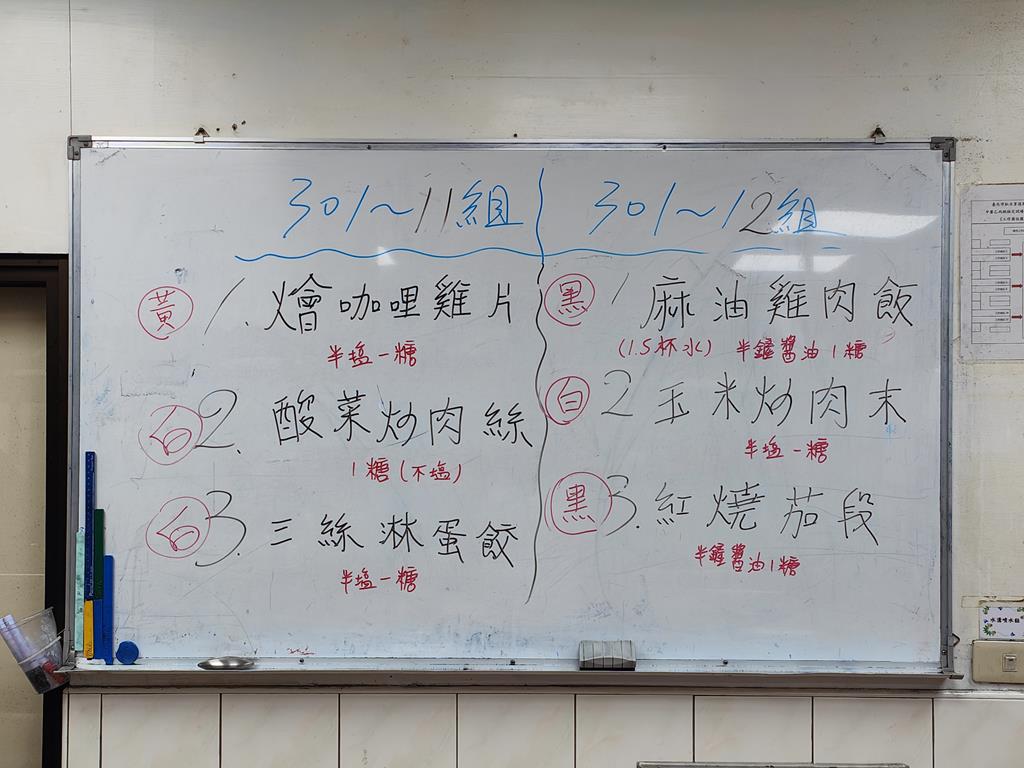 301~11組
黃 1. 燴咖哩雞片
半塩一糖
白 2. 酸菜炒肉絲
1糖(不塩)
白 3. 三絲淋蛋餃
半塩一糖
301~12組
黑 1 麻油雞肉飯
(1.5杯水) 半鐘醬油1糖
白 2 玉米炒肉末
半塩一糖
黑 3. 紅燒茄段
半鐘醬油1糖